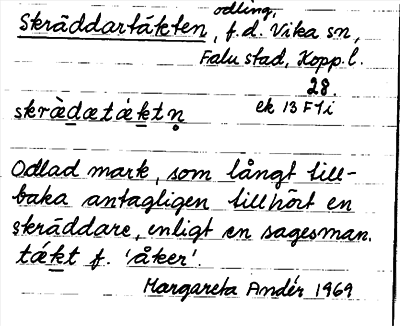 odling,
Skräddartäkten, f.d. Vika sn,
Falu stad, Kopp. l.
28.
skrǜdætǽktn̥ ek 13 F1i
Odlad mark, som långt till-
baka antagligen tillhört en
skräddare, enligt en sagesman.
tǽkt f. 'åker'.
Margareta Andér 1969